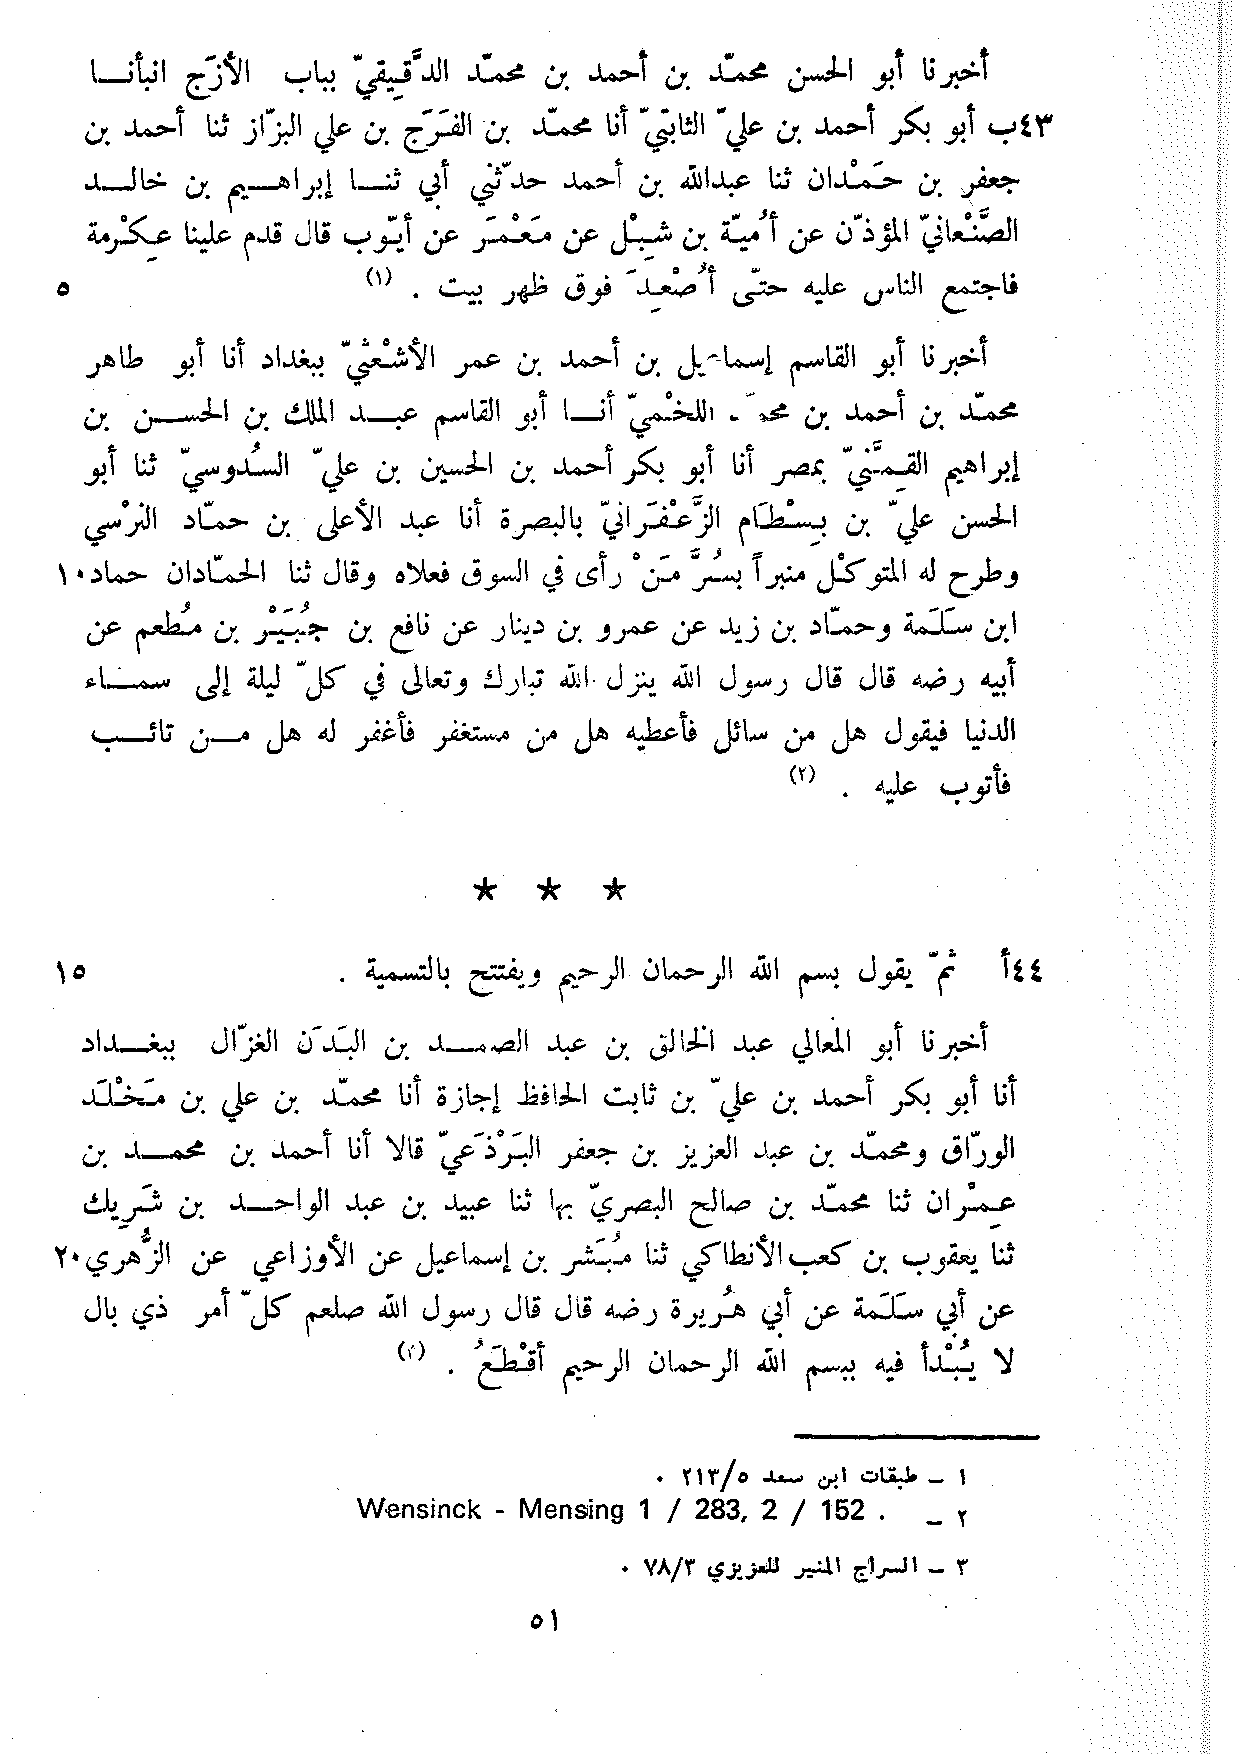 أخبرنا أبو الحسن محمّد بن أحمد بن محمّد الدَّقِيقيّ بباب الأزَج انبأنا
٤٣ب أبو بكر أحمد بن عليّ الثابتيّ أنا محمّد بن الفَرَج بن علي البزّاز ثنا أحمد بن
جعفر بن حَمْدان ثنا عبدالله بن أحمد حدّثني أبي ثنا إبراهيم بن خالد
الصَّنْعانيّ المؤذّن عن أُميّة بن شِبْل عن مَعْمَر عن أيّوب قال قدم علينا عِكْرمة
فاجتمع الناس عليه حتّى أُصْعِدَ فوق ظهر بيت . (١) ٥
أخبرنا أبو القاسم إسماعيل بن أحمد بن عمر الأشْعَثيّ ببغداد أنا أبو طاهر
محمّد بن أحمد بن محمد اللخْميّ أنا أبو القاسم عبد الملك بن الحسن بن
إبراهيم القِمَّنيّ بمصر أنا أبو بكر أحمد بن الحسين بن عليّ السُدوسيّ ثنا أبو
الحسن عليّ بن بِسْطام الزَّعْفَرانيّ بالبصرة أنا عبد الأعلى بن حمّاد النرْسي
وطرح له المتوكّل منبراً بسُرَّ مَنْ رأى في السوق فعلاه وقال ثنا الحمّادان حماد ١٠
ابن سَلَمة وحمّاد بن زيد عن عمرو بن دينار عن نافع بن جُبَيْر بن مُطعم عن
أبيه رضه قال قال رسول الله ينزل الله تبارك وتعالى في كلّ ليلة إلى سماء
الدنيا فيقول هل من سائل فأعطيه هل من مستغفر فأغفر له هل من تائب
فأتوب عليه . (٢)
* * *
٤٤أ ثمّ يقول بسم الله الرحمان الرحيم ويفتتح بالتسمية . ١٥
أخبرنا أبو المعالي عبد الخالق بن عبد الصمد بن البَدَن الغزّال ببغداد
أنا أبو بكر أحمد بن عليّ بن ثابت الحافظ إجازة أنا محمّد بن علي بن مَخْلَد
الورّاق ومحمّد بن عبد العزيز بن جعفر البَرْذَعيّ قالا أنا أحمد بن محمد بن
عِمْران ثنا محمّد بن صالح البصريّ بها ثنا عبيد بن عبد الواحد بن شَرِيك
ثنا يعقوب بن كعب الأنطاكي ثنا مُبَشر بن إسماعيل عن الأوزاعي عن الزُّهري ٢٠
عن أبي سَلَمة عن أبي هُريرة رضه قال قال رسول الله صلعم كلّ أمر ذي بال
لا يُبْدأ فيه ببسم الله الرحمان الرحيم أقْطَعُ . (٣)
١ - طبقات ابن سعد ٢١٣/٥ .
٢ - Wensinck - Mensing 1 / 283, 2 / 152 .
٣ - السراج المنير للعزيزي ٧٨/٣ .
٥١